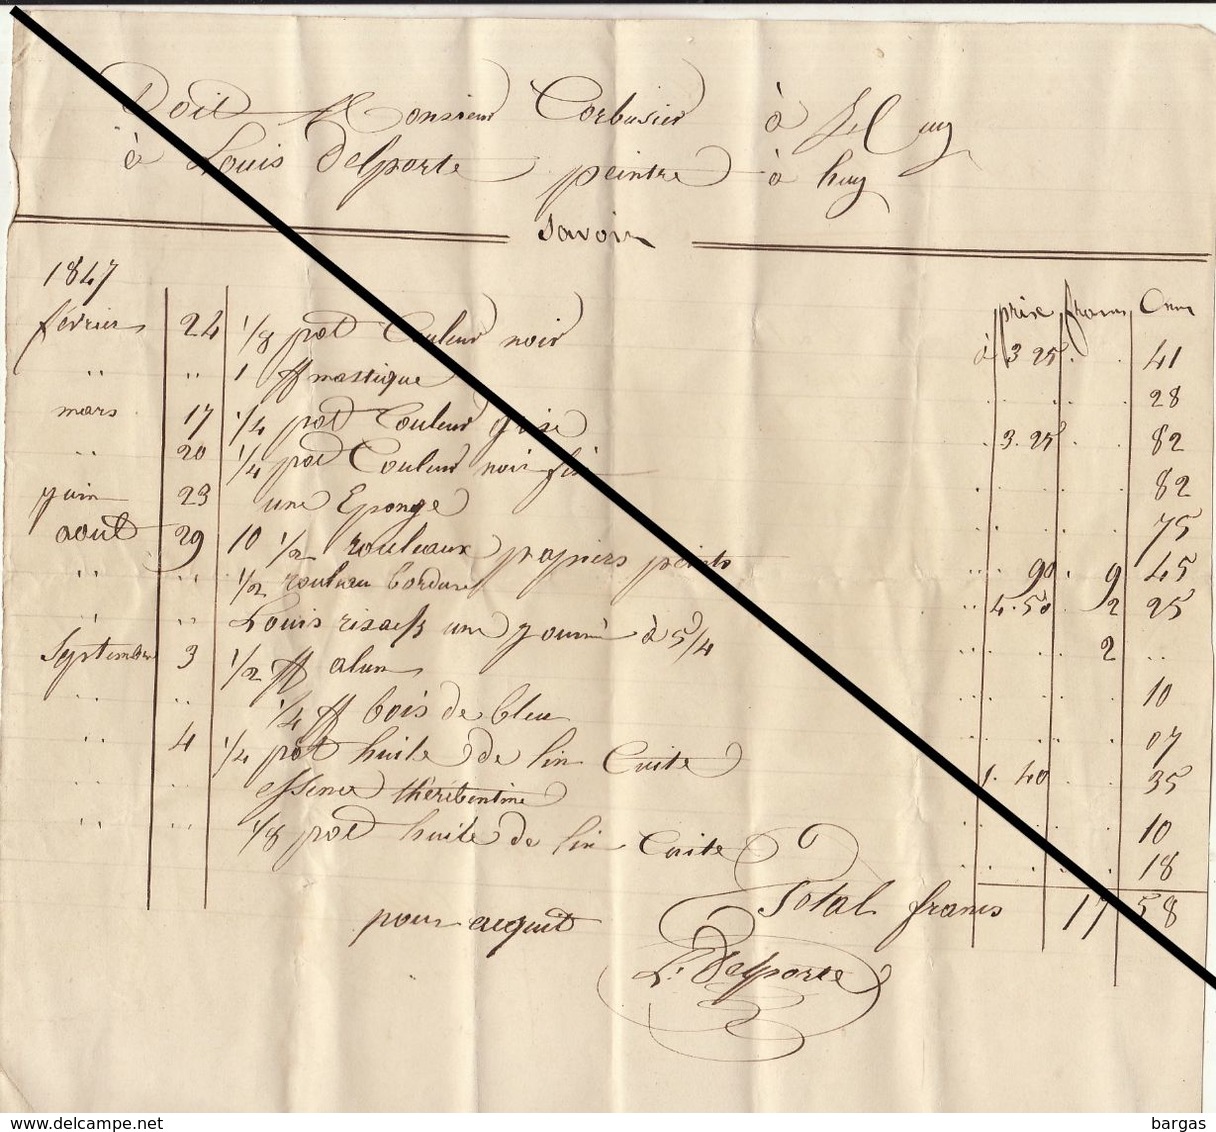 Doit Monsieur Corbusier à huy
à Louis Delporte peintre à huy
Savoir
1847
prix francs Cmes
février 24 1/8 pot Couleur noir à 3 25 . . 41
" " 1 ff mastique . . . . 28
mars 17 1/4 pot Couleur grise . 3.25 . . 82
" 20 1/4 pot Couleur noir fin . . . . 82
juin 23 une Eponge . . . . 75
aout 29 10 1/2 rouleaux papiers peints .. 90 . 9 45
" " 1/2 rouleau bordure .. 4.50 . 2 25
" " Louis une journé à 5/4 .. . . 2 ..
Septembre 3 1/2 ff alun . . . . 10
" " 1/4 ff bois de bleu . . . . 07
" 4 1/4 pot huile de lin Cuite 1.40 . . 35
" " essence thérébentine . . . . 10
" " 1/8 pot huile de lin Cuite . . . . 18
Total francs 17 58
pour acquit
L. Delporte
www.delcampe.net
bargas